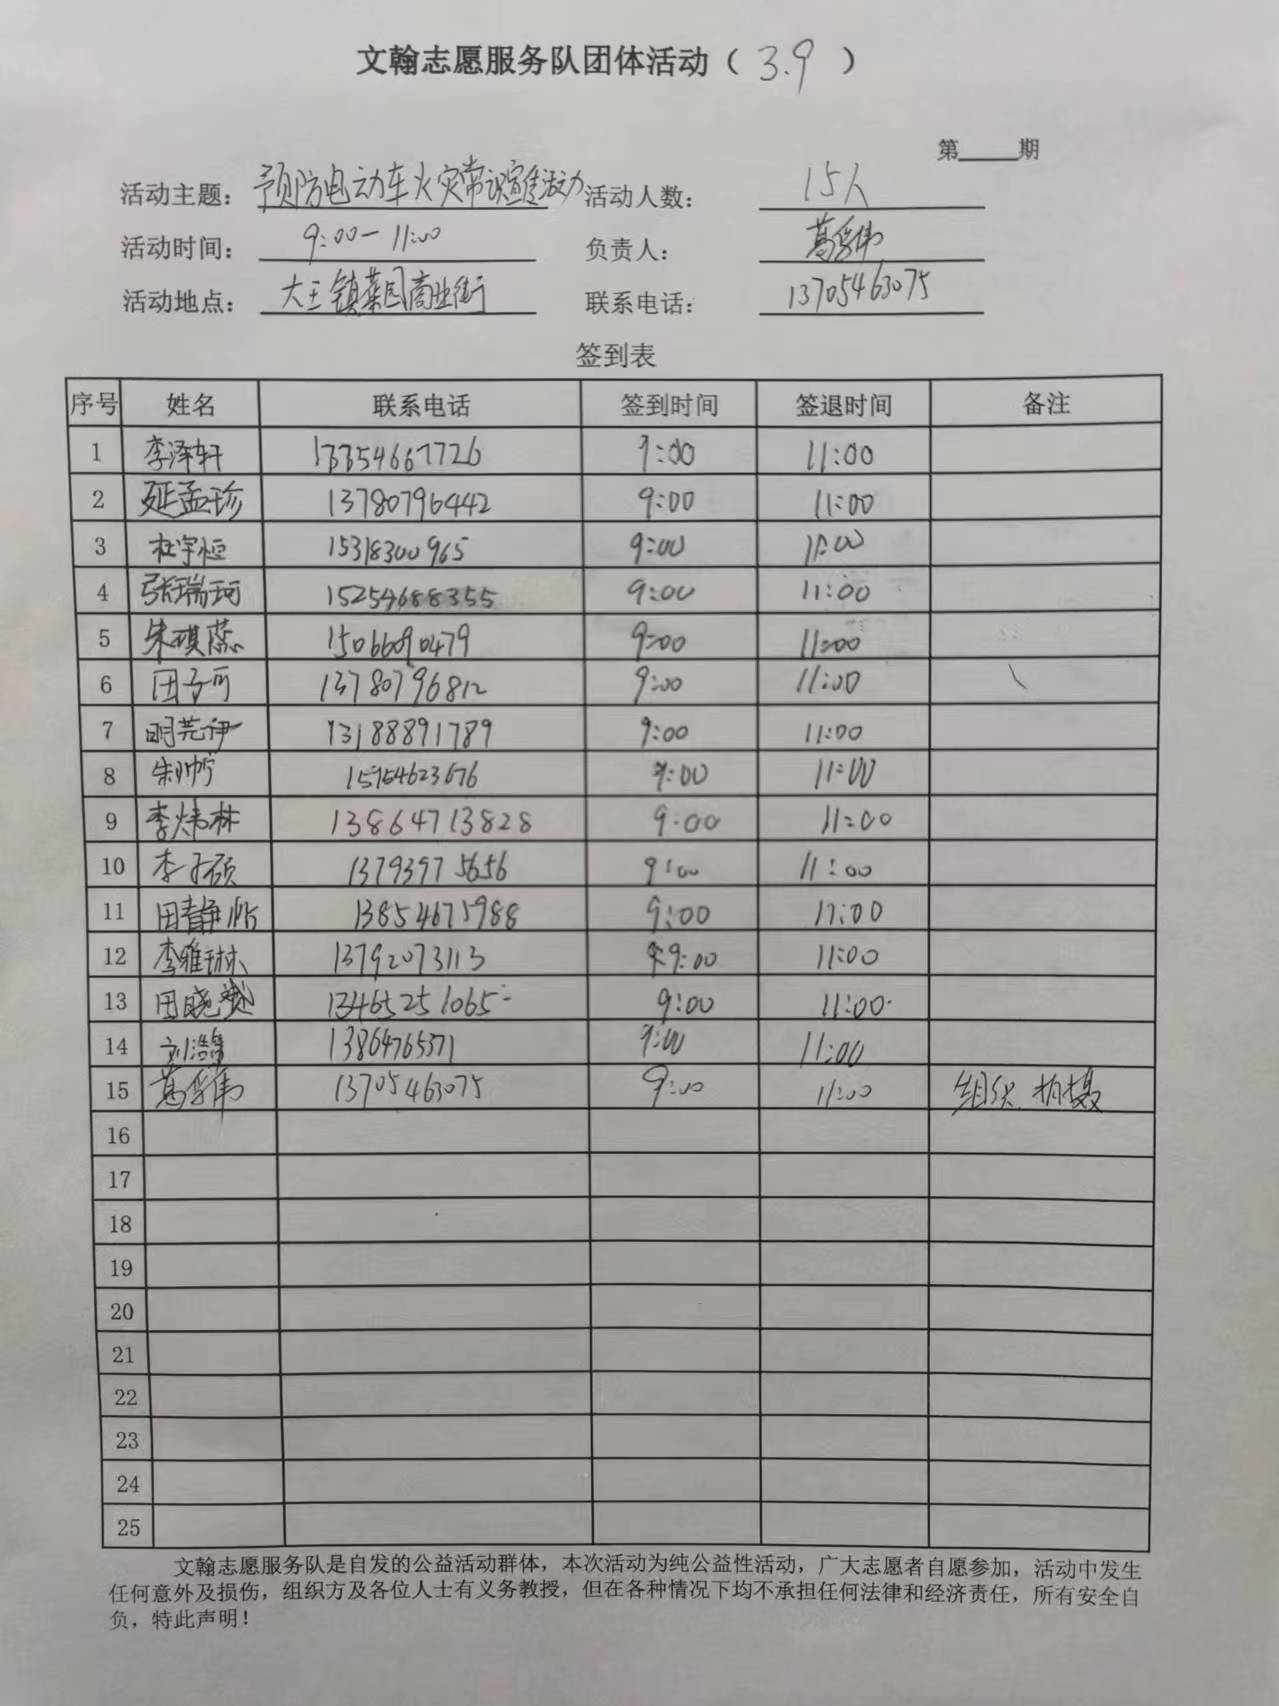 文翰志愿服务队团体活动（ 3.9 ）
第____期
活动主题：预防电动车火灾常识宣传活动 活动人数：15人
活动时间：9:00-11:00 负责人：葛学伟
活动地点：大王镇菜园商业街 联系电话：13705463075
签到表
序号 姓名 联系电话 签到时间 签退时间 备注
1 李泽轩 13354667726 9:00 11:00
2 延孟珍 13780796442 9:00 11:00
3 杜宇恒 15318300965 9:00 11:00
4 张瑞珂 15254688355 9:00 11:00
5 朱琪蕊 15066090479 9:00 11:00
6 田子可 13780796812 9:00 11:00
7 明芫伊 13188891789 9:00 11:00
8 朱帅宁 15954623676 9:00 11:00
9 李炜林 13864713828 9:00 11:00
10 李子硕 13793975656 9:00 11:00
11 田静 13854675988 9:00 11:00
12 李雅琳 13792073113 9:00 11:00
13 田晓 13465251065 9:00 11:00
14 刘浩 13864765371 9:00 11:00
15 葛学伟 13705463075 9:00 11:00 组织、拍摄
16
17
18
19
20
21
22
23
24
25
文翰志愿服务队是自发的公益活动群体，本次活动为纯公益性活动，广大志愿者自愿参加，活动中发生
任何意外及损伤，组织方及各位人士有义务教授，但在各种情况下均不承担任何法律和经济责任，所有安全自
负，特此声明！